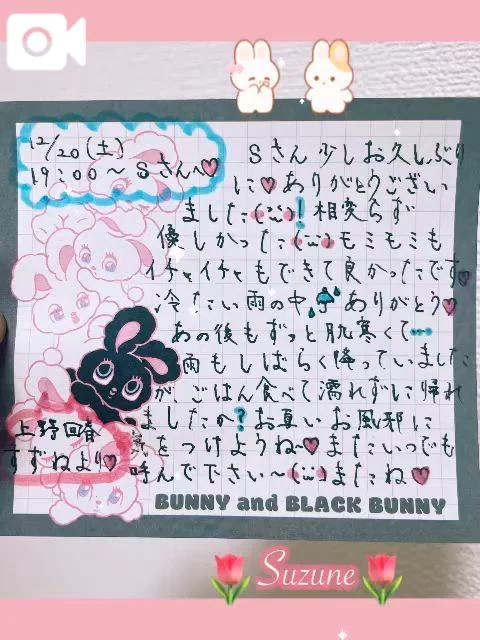 12/20(土)
19:00〜Sさんへ♡
Sさん少しお久しぶり
に♡ありがとうござい
ました(¨̮)!相変らず
優しかったです(¨̮)モミモミも
イチャイチャもできて良かったです♡
冷たい雨の中☂ありがとう♡
あの後もずっと肌寒くて…
雨もしばらく降っていました
が、ごはん食べて濡れずに帰れ
ましたか?お互いお風邪に
気をつけようね〜♡またいつでも
呼んで下さい〜(¨̮)またね♡
上野回春
すずねより♡
BUNNY and BLACK BUNNY
Suzune